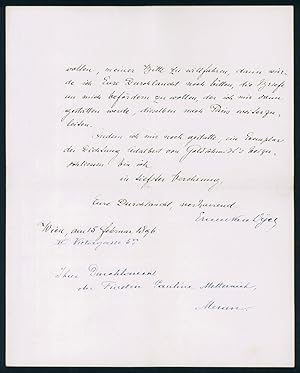 wollen, meiner Bitte zu willfahren, dann wer-
de ich Eure Durchlaucht noch bitten, die Briefe
an mich befördern zu wollen, der ich mir dann
gestatten werde, dieselben nach Paris weiterzu-
leiten.
Indem ich mir noch gestatte, ein Exemplar
der Dichtung
bin ich
in tiefster Verehrung
Eure Durchlaucht
Wien, am 15 Februar 1896
Ihrer Durchlaucht
der Fürstin Pauline Metternich